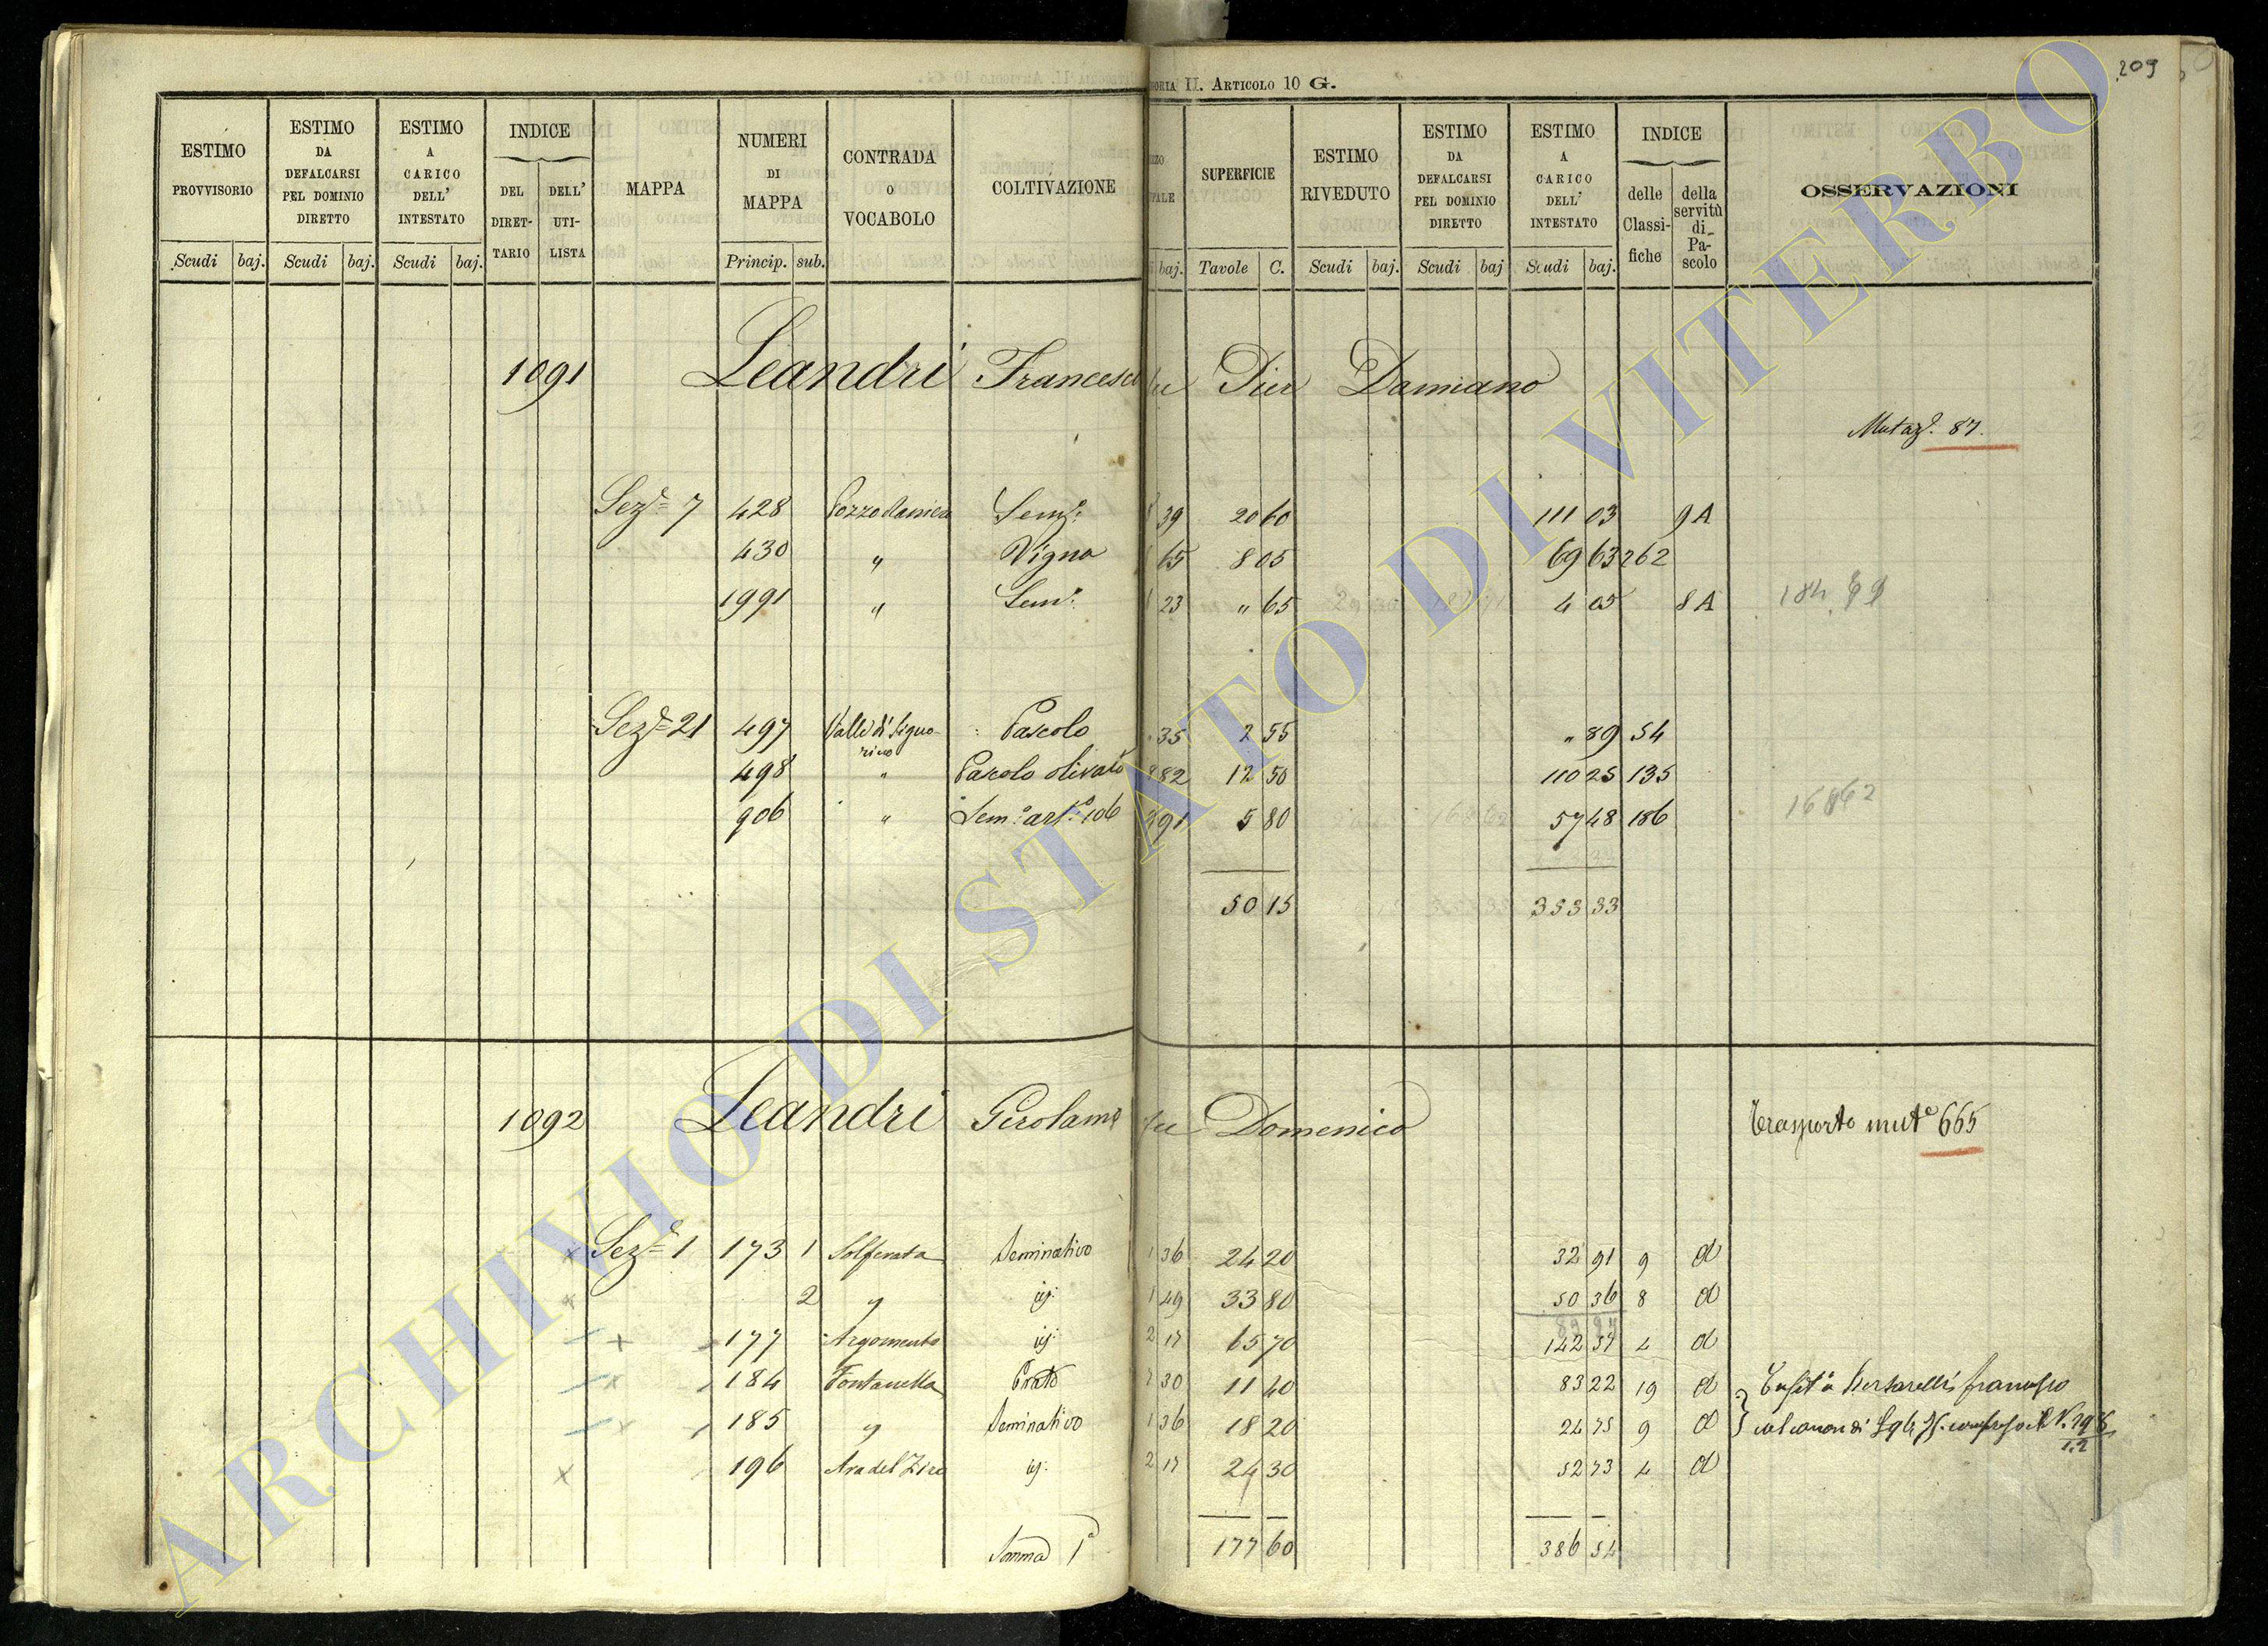 209
GORIA II. ARTICOLO 10 G.
ESTIMO PROVVISORIO Scudi baj.
ESTIMO DA DEFALCARSI PEL DOMINIO DIRETTO Scudi baj.
ESTIMO A CARICO DELL' INTESTATO Scudi baj.
INDICE DEL DIRETTARIO DELL' UTILISTA
MAPPA
NUMERI DI MAPPA Princip. sub.
CONTRADA O VOCABOLO
COLTIVAZIONE
baj.
SUPERFICIE Tavole C.
ESTIMO RIVEDUTO Scudi baj.
ESTIMO DA DEFALCARSI PEL DOMINIO DIRETTO Scudi baj
ESTIMO A CARICO DELL' INTESTATO Scudi baj.
INDICE delle Classifiche della servitù di Pascolo
OSSERVAZIONI
1091 Leandri Francesco fu Pier Damiano
Mutaz.e 87.
Sez.e 7 428 Sem.o 39 20 60 111 03 9 A
430 " Vigna 65 8 05 69 63 262
1991 " Sem.o 23 " 65 4 05 8 A
Sez.e 21 497 Valle di Signorino Pascolo 35 2 55 " 89 54
498 " Pascolo olivato 82 12 50 110 25 135
906 " Sem.o art.o 106 91 5 80 57 48 186
16862
50 15 353 33
1092 Leandri Girolamo fu Domenico
Trasporto mut.e 665
Sez.e 1 173 1 Solferata Seminativo 1 36 24 20 32 91 9 d
2 " id. 1 49 33 80 50 36 8 d
177 Argomenta id. 2 17 65 70 142 57 4 d
184 Fontanella Prato 7 30 11 40 83 22 19 d
185 " Seminativo 1 36 18 20 24 75 9 d
196 Ara del Zire id. 2 17 24 30 52 73 4 d
Somma 1.a 177 60 386 54
ARCHIVIO DI STATO DI VITERBO